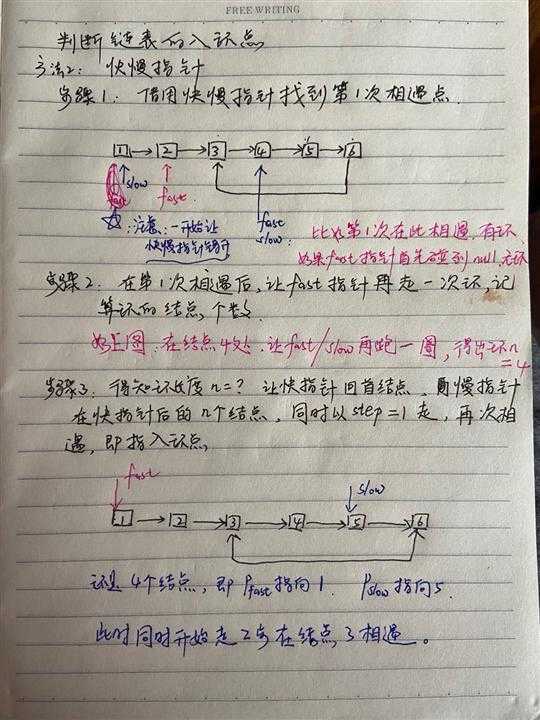 FREE WRITING
判断链表的入环点
方法2: 快慢指针
步骤1: 借用快慢指针找到第1次相遇点.
1 2 3 4 5 6
fast slow fast
注意:一开始让
快慢指针错开
fast
slow:
比如第1次在此相遇,有环.
如果fast指针首先碰到null,无环
步骤2: 在第1次相遇后,让fast指针再走一次环,记
算环的结点个数.
如上图:在结点4处.让fast/slow再跑一圈,得出环n
=4
步骤3: 得知环长度n=? 让快指针回首结点,则慢指针
在快指针后的n个结点,同时以step=1走,再次相
遇,即指入环点
fast
slow
1 2 3 4 5 6
还是4个结点,即Pfast指向1. Pslow指向5.
此时同时开始走2步在结点3相遇。